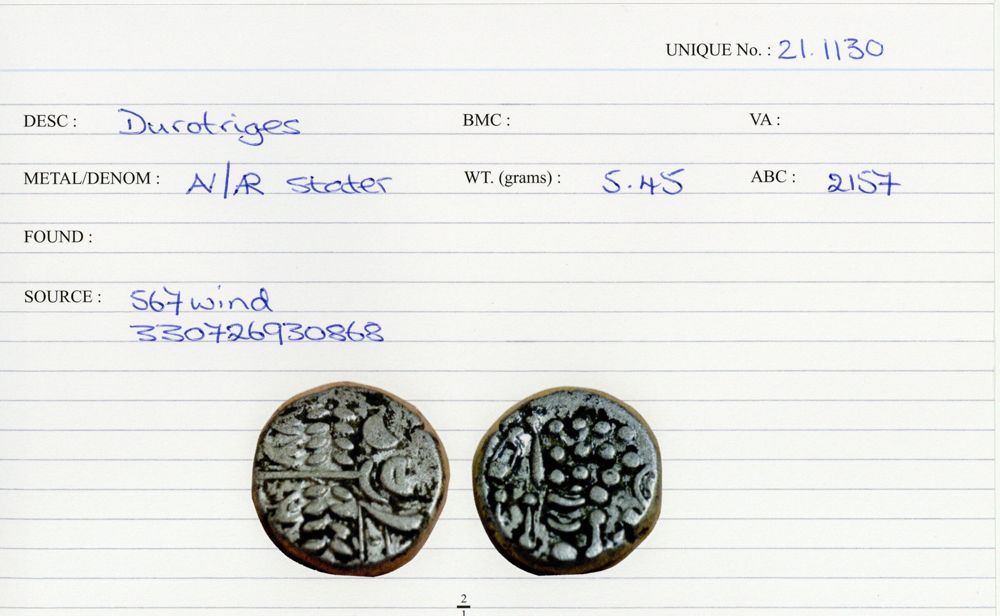 UNIQUE No. : 21.1130
DESC : Durotriges BMC : VA :
METAL/DENOM : AV/AR stater WT. (grams) : 5.45 ABC : 2157
FOUND :
SOURCE : 567wind
330726930868
2
1